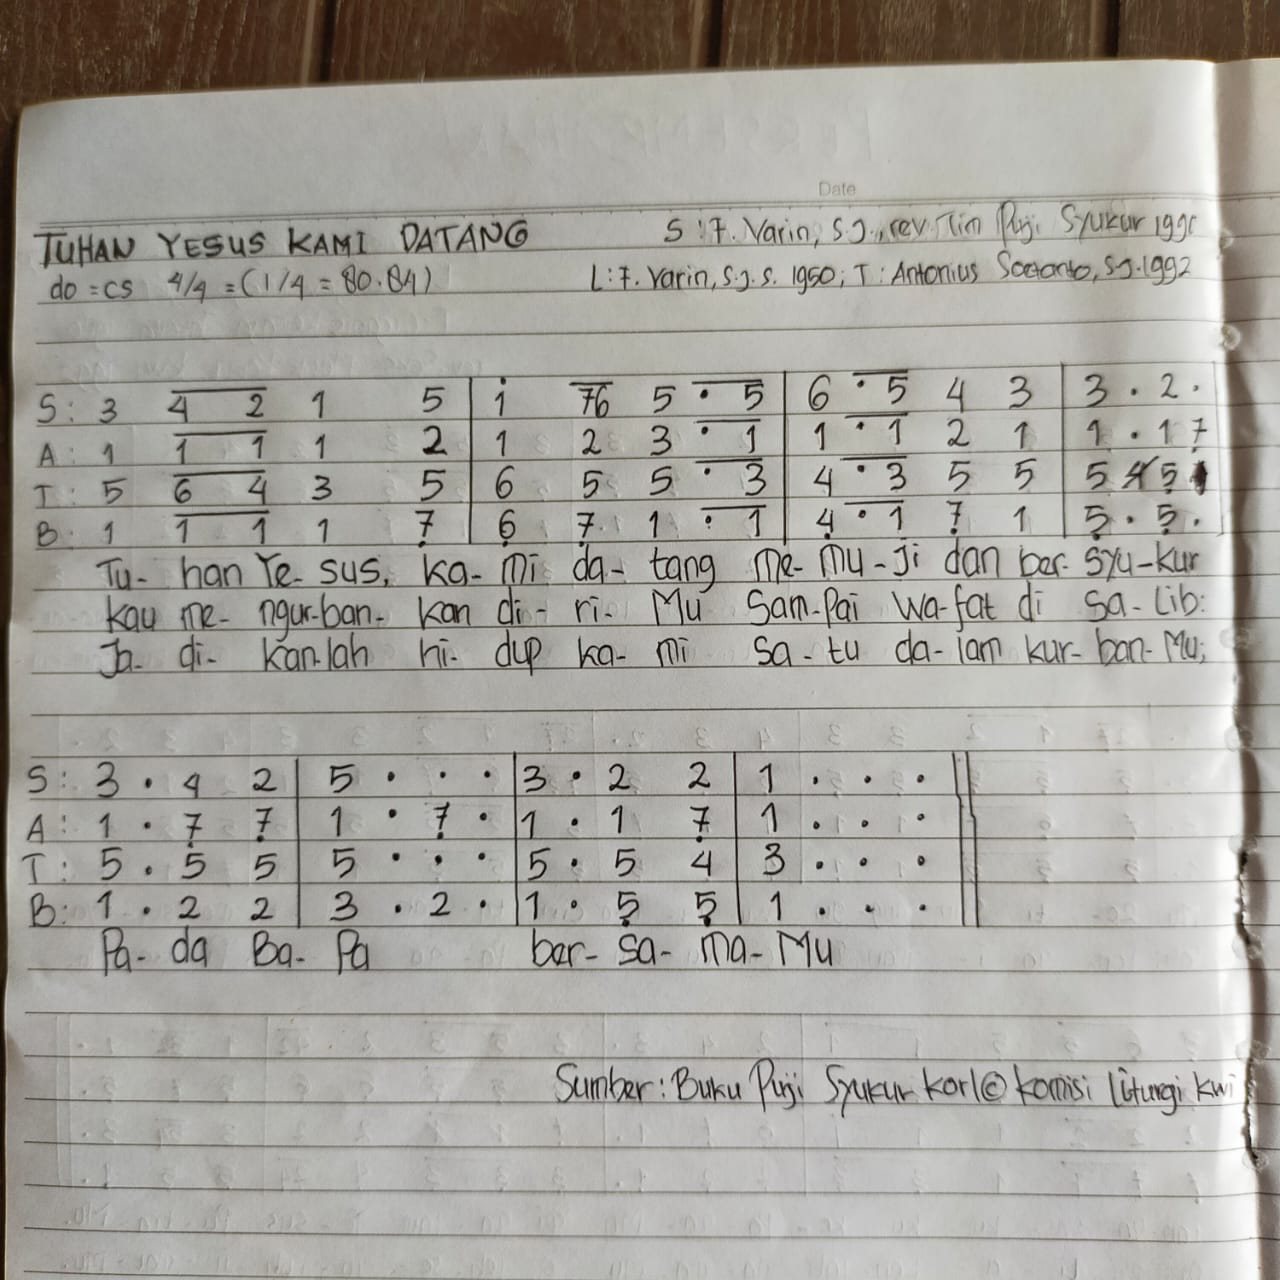 Date
TUHAN YESUS KAMI DATANG S : F. Varin, S.J., rev. Tim Puji Syukur 1990
do = cs 4/4 = (1/4 = 80.84) L : F. Varin, S.J. s. 1950; T : Antonius Soetanto, S.J. 1992
S: 3 4 2 1 5 | i 76 5 . 5 | 6 . 5 4 3 | 3 . 2 .
A: 1 1 1 1 2 | 1 2 3 . 1 | 1 . 1 2 1 | 1 . 1 7
T: 5 6 4 3 5 | 6 5 5 . 3 | 4 . 3 5 5 | 5 4 5
B: 1 1 1 1 7̣ | 6̣ 7̣ 1 . 1 | 4̣ . 1 7̣ 1 | 5̣ . 5̣ .
Tu- han Ye- sus, ka- mi da- tang me- mu - ji dan ber- syu-kur
kau me- ngur-ban- kan di- ri- Mu sam-pai wa-fat di sa-lib:
Ja- di- kan-lah hi- dup ka- mi sa - tu da-lam kur- ban-Mu;
S: 3 . 4 2 | 5 . . . | 3 . 2 2 | 1 . . .
A: 1 . 7̣ 7̣ | 1 . 7̣ . | 1 . 1 7̣ | 1 . . .
T: 5 . 5 5 | 5 . . . | 5 . 5 4 | 3 . . .
B: 1 . 2 2 | 3 . 2 . | 1 . 5̣ 5̣ | 1 . . .
Pa- da Ba- Pa ber- sa- ma- Mu
Sumber : Buku Puji Syukur kor/© komisi Liturgi kwi